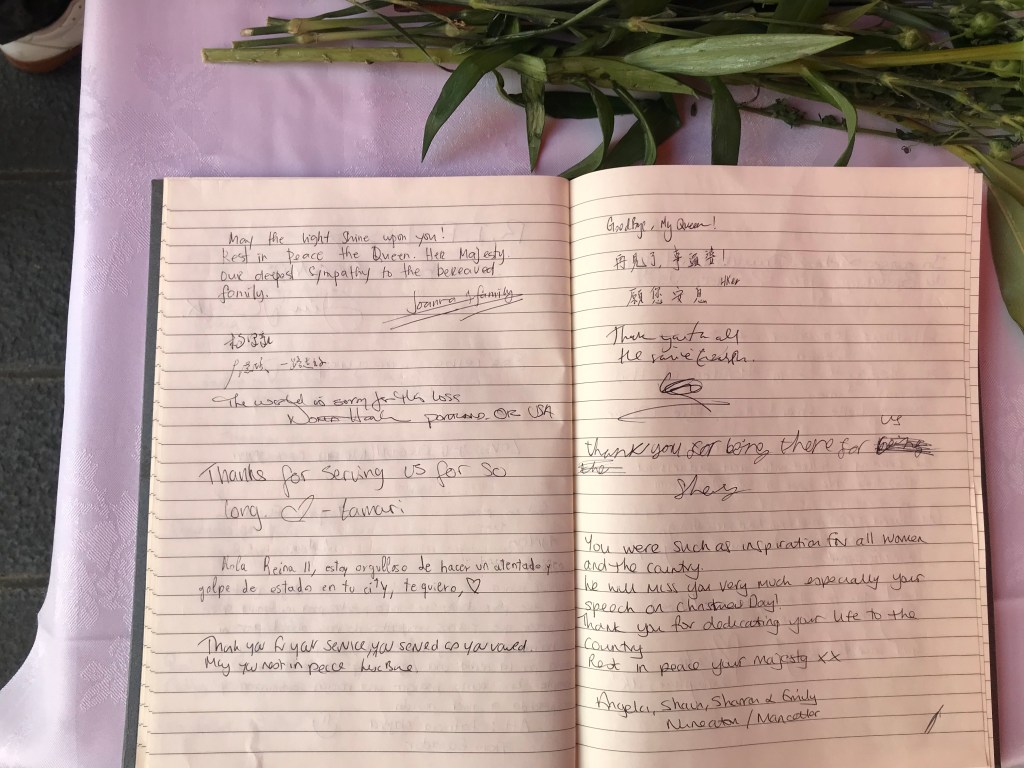 May the light shine upon you!
Rest in peace the Queen. Her Majesty
our deepest sympathy to the bereaved
family.
Joanna & family
一路走好
The world is sorry for this loss
Portland, OR USA
Thanks for serving us for so
long ♡ - tamari
Hola Reina II, estoy orgulloso de hacer un atentado y
golpe de estado en tu city, te quiero, ♡
Thank you for your service, you served as you vowed.
May you rest in peace
Goodbye, My Queen!
再見了, 事頭婆!
願您安息 HKer
Thank you for all
the service
thank you for being there for us
the
You were such as inspiration for all women
and the country.
We will miss you very much especially your
speech on Christmas Day!
Thank you for dedicating your life to the
country
Rest in peace your majesty xx
Angela, Shaun, Sharon & Emily
Nuneaton / Mancetter